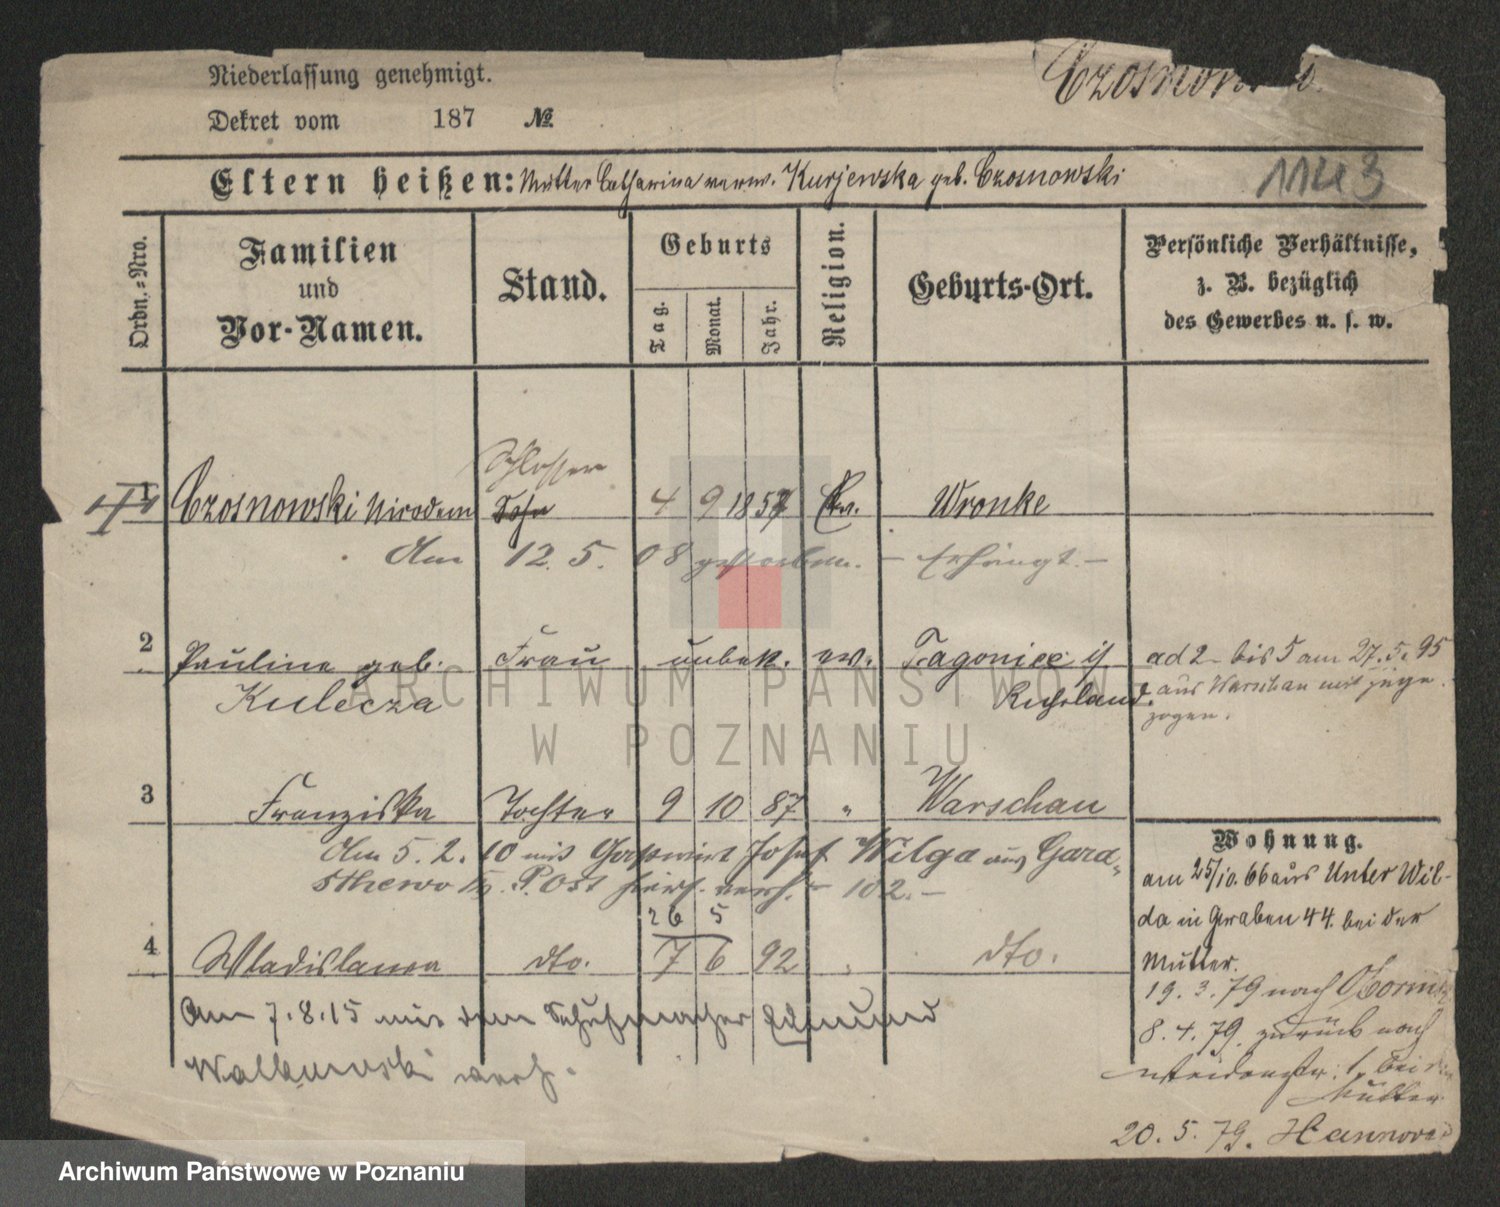 Niederlassung genehmigt.
Dekret vom 187 №
Czosnowski
Eltern heißen: Mutter Catharina verw. Kurjewska geb. Czosnowski
1143
Ordn.=Nro.
Familien
und
Vor-Namen.
Stand.
Geburts
Tag.
Monat.
Jahr.
Religion.
Geburts-Ort.
Persönliche Verhältnisse,
z. B. bezüglich
des Gewerbes u. s. w.
Schlosser
1 Czosnowski Nicodem Sohn 4 9 1857 Wronke
Am 12. 5. 08 gestorben. – Erhängt. –
2 Pauline geb. Frau unbek. ev. Tagoniec i/
Kulecza Russland.
ad 2 – bis 5 am 27.5.95
aus Warschau mit zuge
zogen.
3 Franziska Tochter 9 10 87 " Warschau
Am 5. 2. 10 mit Gastwirt Josef Wilga aus Gara-
Post verh. – 102. –
26 5
4 Wladislawa dto. 7 6 92 " dto.
Am 7. 8. 15 mit dem Schuhmacher Edmund
Walkowski verh.
Wohnung.
am 25/10. 66 aus Unter Wil-
da in Graben 44. bei der
Mutter.
19. 3. 79 nach Obornik
8. 4. 79. zurück nach
1, bei der
Mutter
20. 5. 79. Hannover
ARCHIWUM PAŃSTWOWE
W POZNANIU
Archiwum Państwowe w Poznaniu